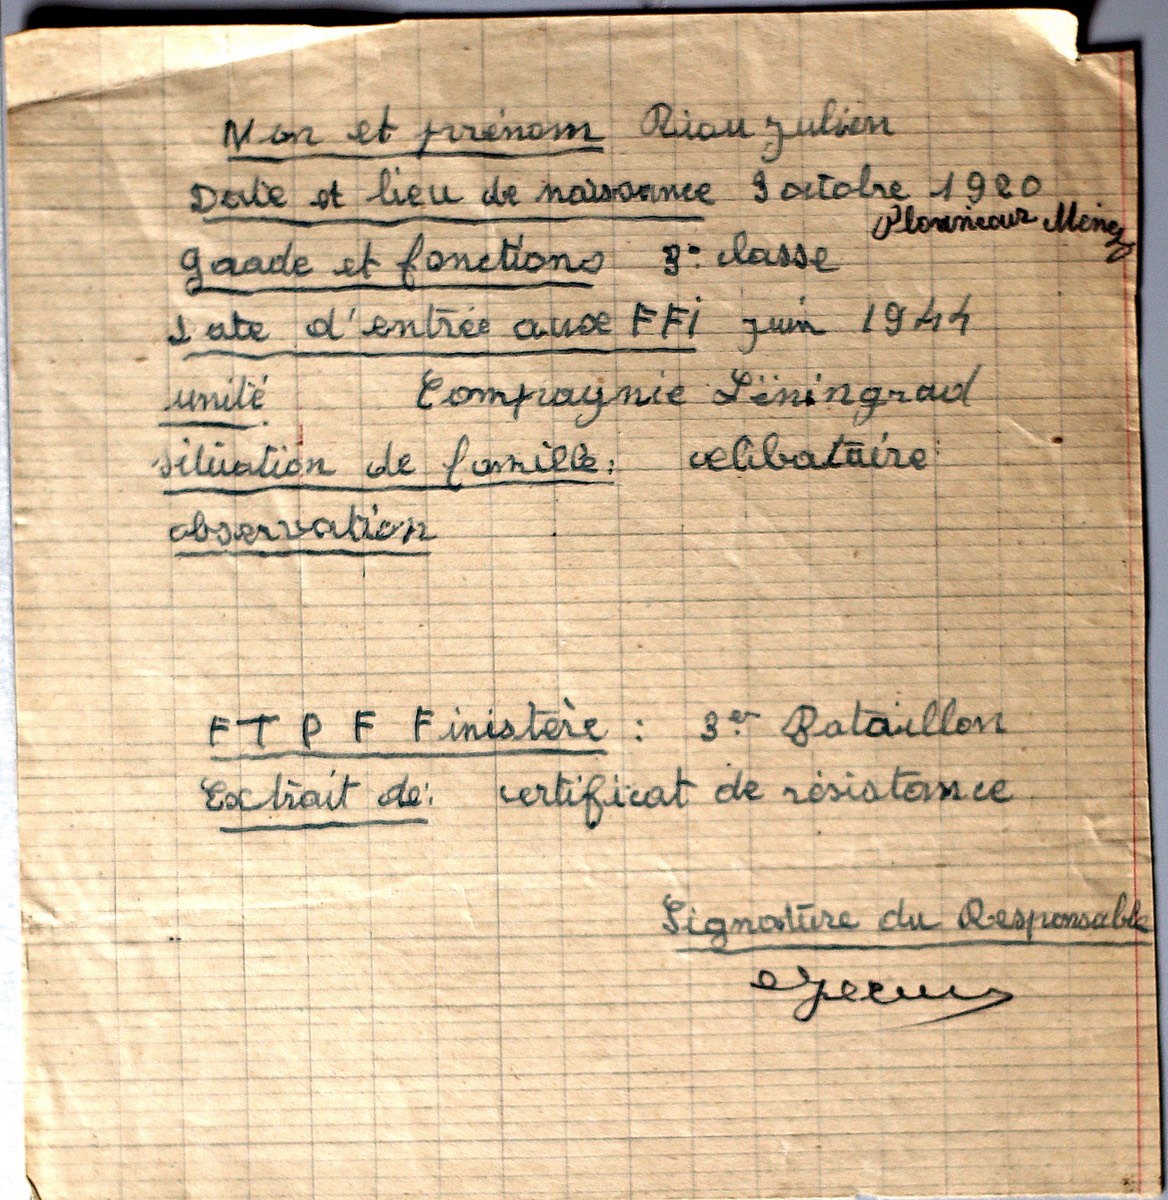 Nom et prénom Riou Julien
Date et lieu de naissance 3 octobre 1920
Plounéour Ménez
Grade et fonctions 2e classe
Date d'entrée aux FFi juin 1944
unité Compagnie Léningrad
situation de famille: célibataire
observation
F T P F Finistère : 3er Bataillon
Extrait de: certificat de résistance
Signature du Responsable